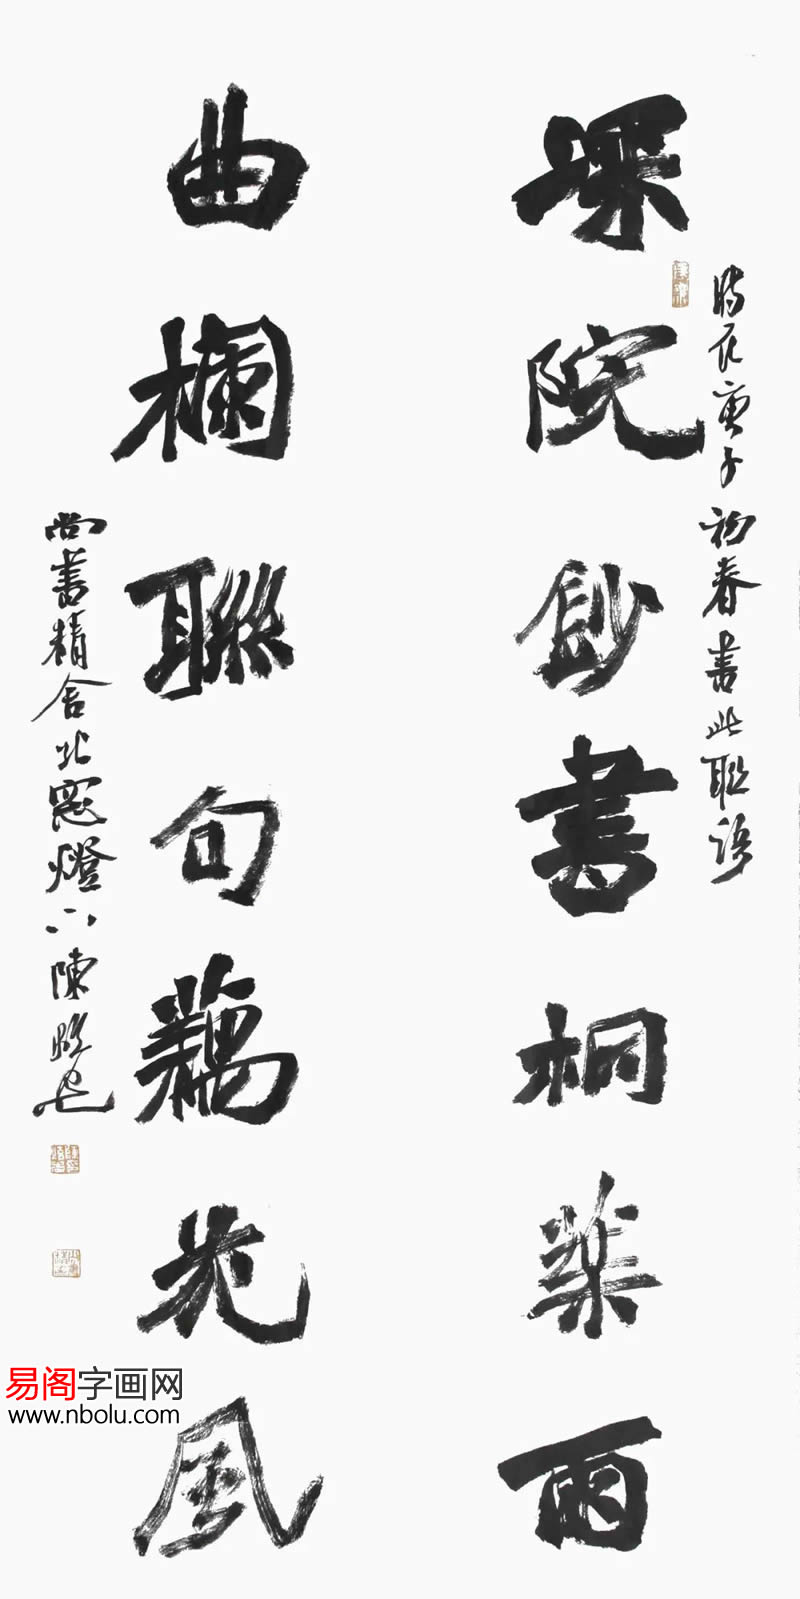 深院鈔書桐葉雨
時在庚子初春書此聯語
曲欄聯句藕花風
尚書精舍北窗燈下陳
易阁字画网
www.nbolu.com